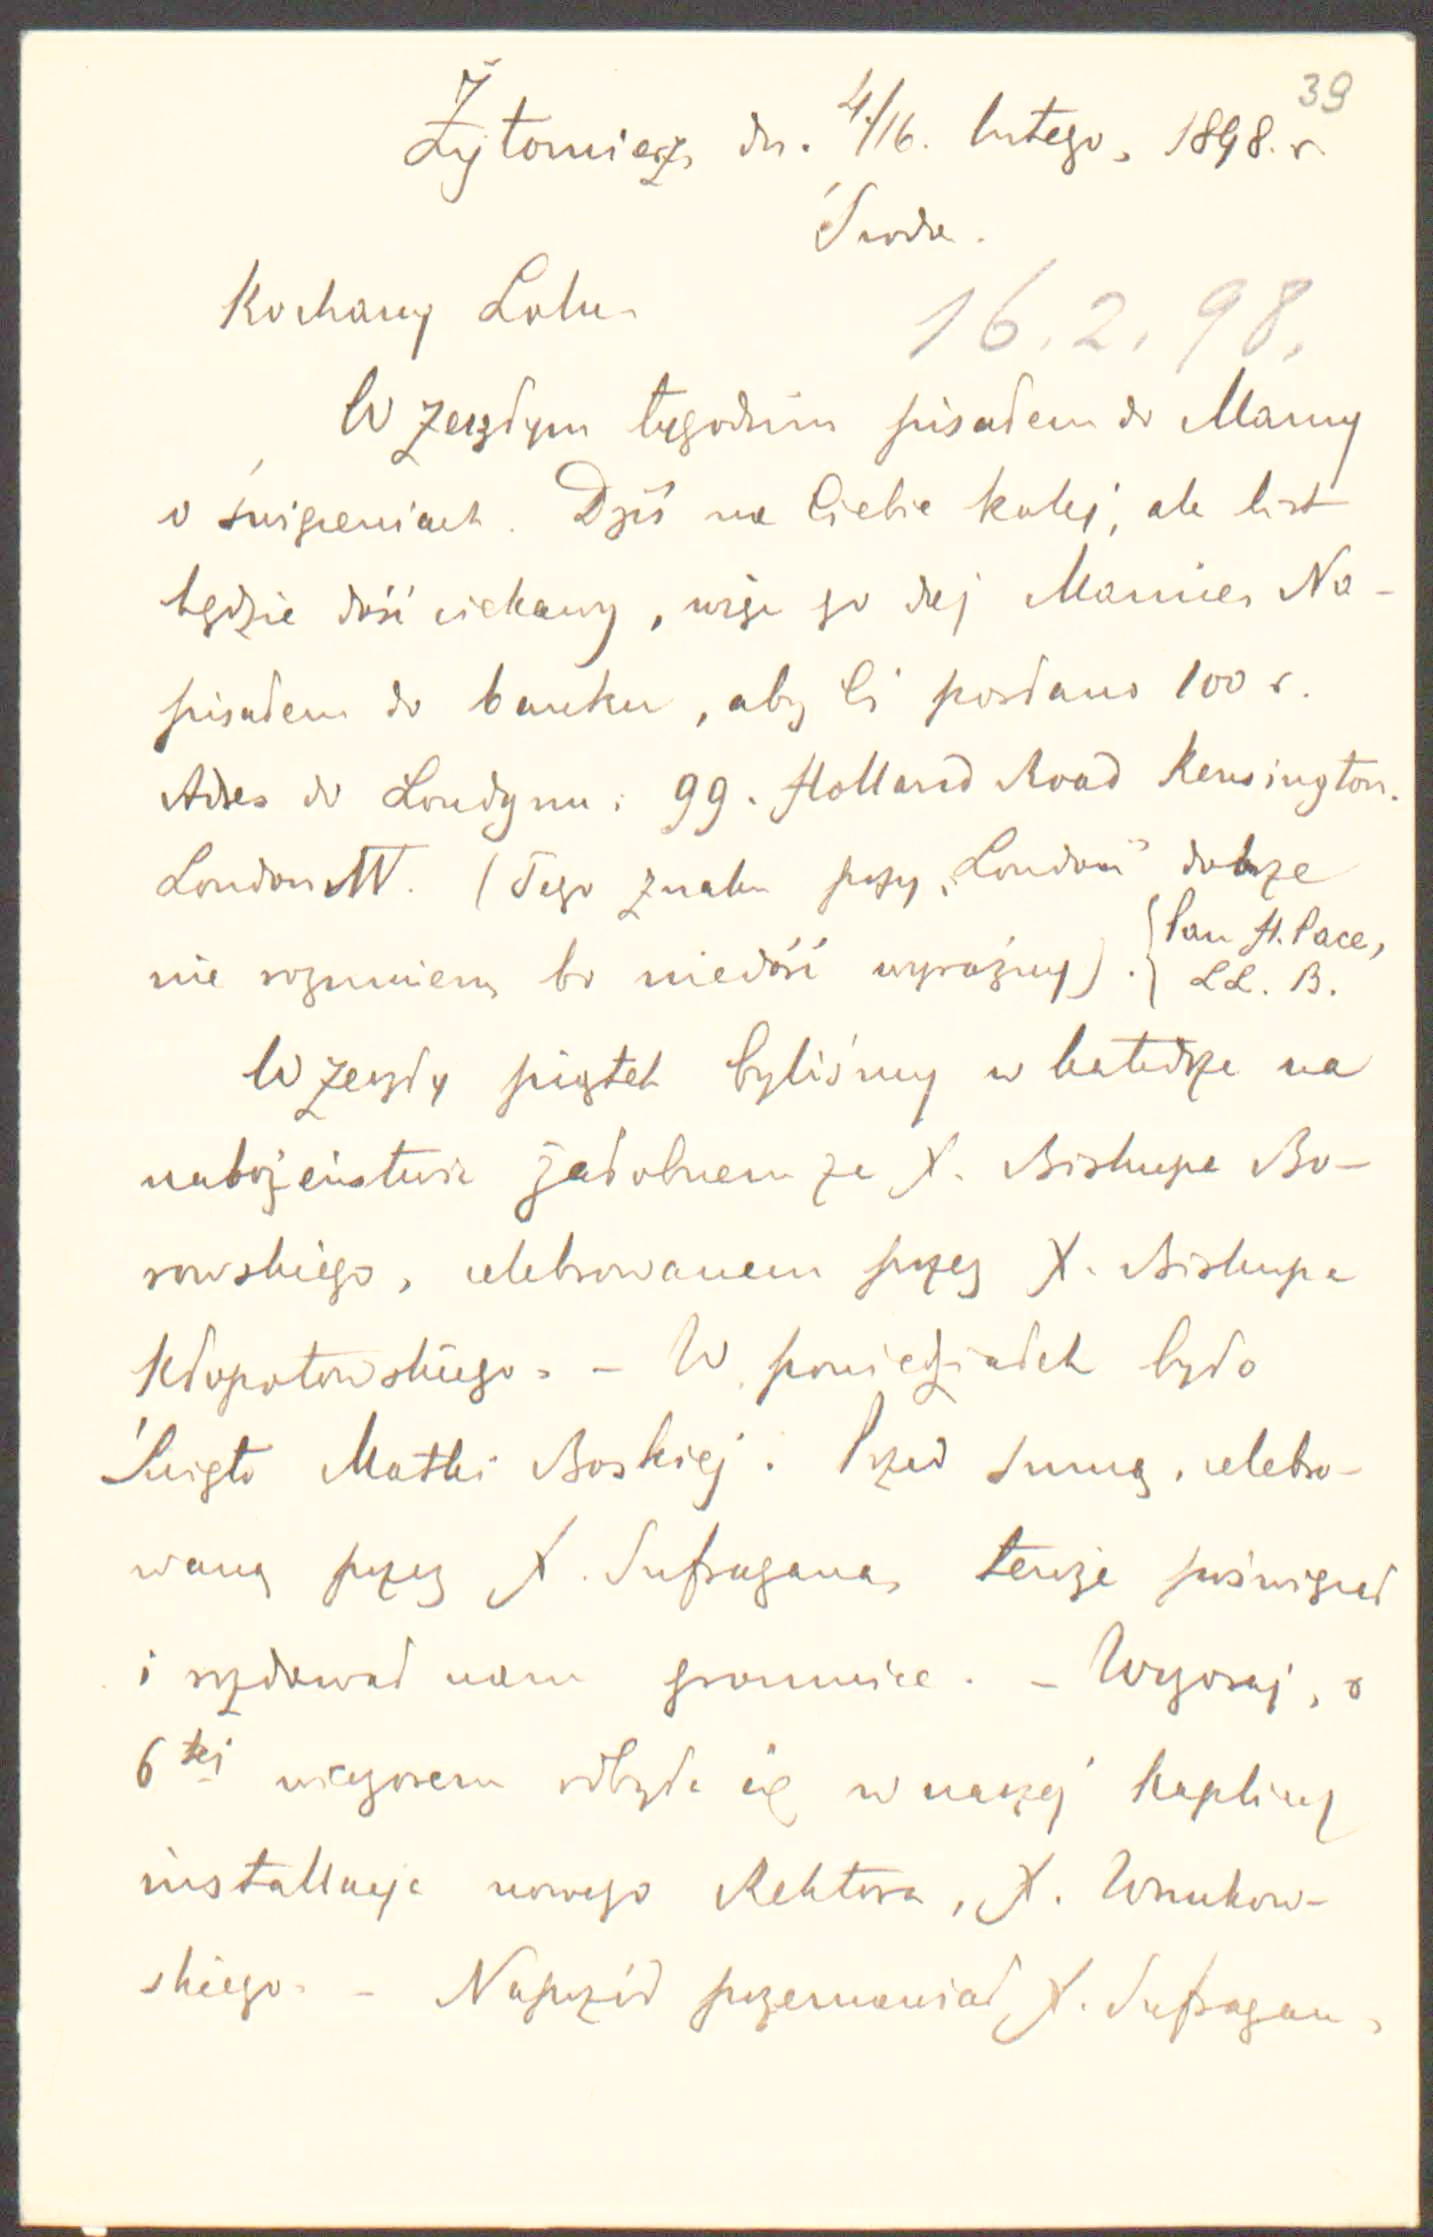 39
Żytomierz, dn. 4/16. lutego, 1898. r.
Środa.
Kochany Lolu,
16.2.98.
W zeszłym tygodniu pisałem do Mamy
o święceniach. Dziś na Ciebie kolej, ale list
będzie dość ciekawy, więc go daj Mamie. Na-
pisałem do banku, aby Ci posłano 100 r.
Adres do Londynu: 99. Holland Road Kensington.
London W. (Tego znaku przy „London" dobrze
nie rozumiem, bo niedość wyraźny). {Pan H. Pace,
LL. B.
W zeszły piątek byliśmy w katedrze na
nabożeństwie żałobnem za X. Biskupa Bo-
rowskiego, celebrowanem przez X. Biskupa
Kłopotowskiego. – W poniedziałek było
Święto Matki Boskiej. Przed sumą, celebro-
waną przez X. Sufragana, tenże poświęcał
i rozdawał nam gromnice. – Wczoraj, o
6tej wieczorem odbyła się w naszej kaplicy
installacja nowego Rektora, X. Wnukow-
skiego. – Naprzód przemawiał X. Sufragan,